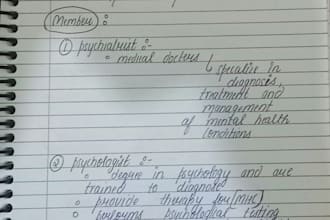 Members :
① psychiatrist :-
○ medical doctors
↳ specialise in
diagnosis,
treatment and
management
of mental health
conditions
② psychologist :-
○ degree in psychology and are
trained to diagnose
○ provide therapy for [MHC]
○ performs psychological testing